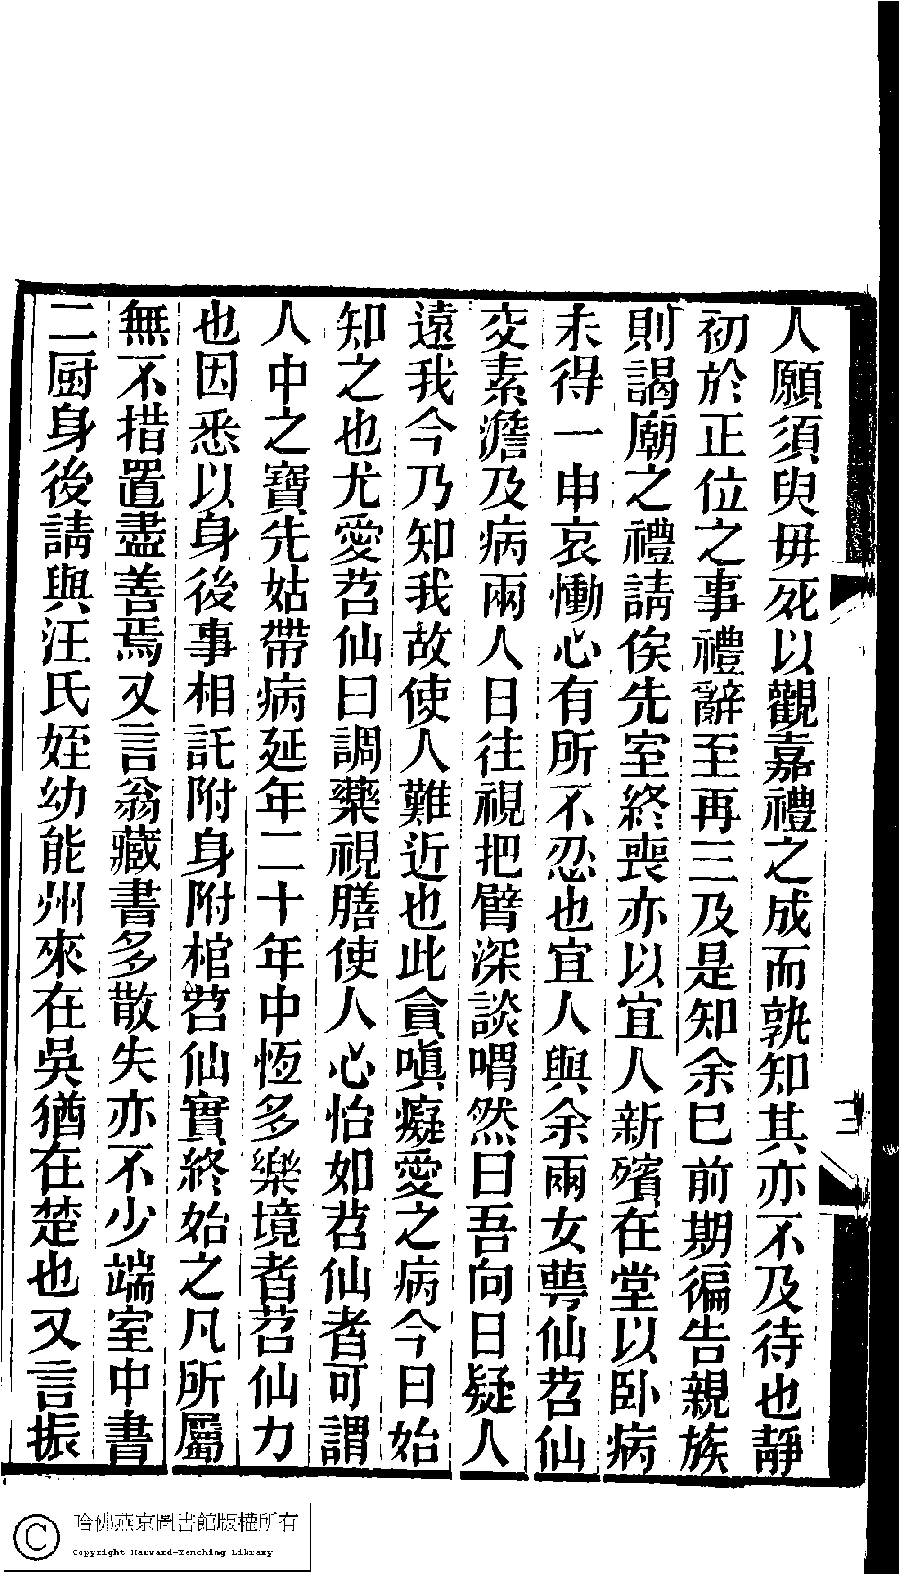 人願須臾毋死以觀嘉禮之成而孰知其亦不及待也靜
初於正位之事禮辭至再三及是知余巳前期徧告親族
則謁廟之禮請俟先室終喪亦以宜人新殯在堂以卧病
未得一申哀慟心有所不忍也宜人與余兩女蕚仙苕仙
交素澹及病兩人日往視把臂深談喟然曰吾向日疑人
遠我今乃知我故使人難近也此貪嗔癡愛之病今日始
知之也尤愛苕仙曰調藥視膳使人心怡如苕仙者可謂
人中之寶先姑帶病延年二十年中恆多樂境者苕仙力
也因悉以身後事相託附身附棺苕仙實終始之凡所屬
無不措置盡善焉又言翁藏書多散失亦不少端室中書
二厨身後請與汪氏姪幼能州來在吳猶在楚也又言振
三
哈佛燕京圖書館版權所有
Copyright Harvard-Yenching Library